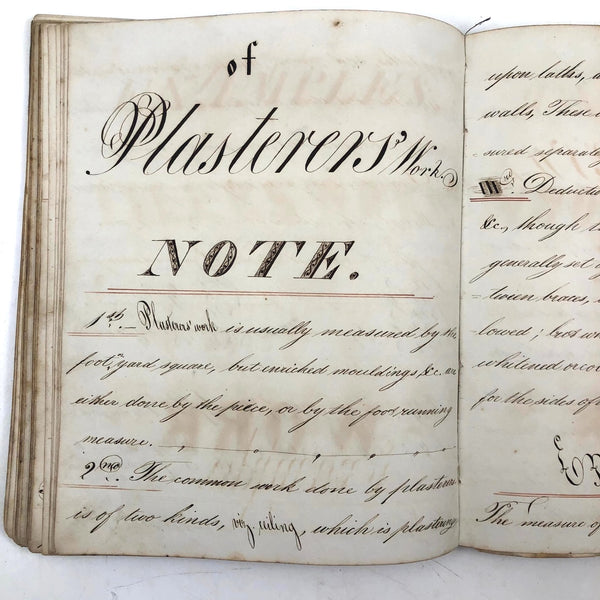 of
Plasterers' Work.
NOTE.
1st. Plasterers' work is usually measured by the
foot, or yard square, but enriched mouldings, &c. are
either done by the piece, or by the foot, running
measure. " " " " "
2nd. The common work done by plasterers
is of two kinds, viz, ceiling, which is plastering
upon laths, a
walls, These
=sured separate
IIIrd. Deductio
&c., though
generally set
=tween braces,
lowed; but w
whitened or co
for the sides of
The measure of